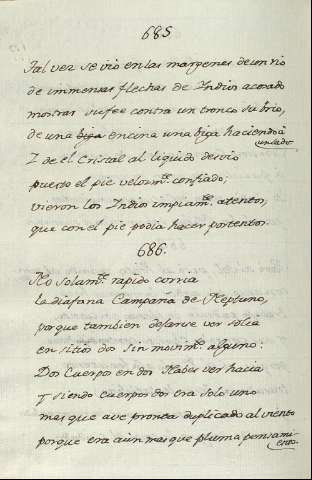 685
Tal vez se vio en las margenes de un rio
de immensas flechas de Indios acosado
mostrar su fee contra un tronco su brio,
de una encina una biga haciendo a
un lado
I de el Cristal al liquido desvio
puesto el pie velozmte. confiado;
vieron los Indios impiamte. atentos,
que con el pie podia hacer portentos.
686.
No solamte. rapido corria
la diafana Campaña de Neptuno,
porque tambien dejarse ver solia
en sitios dos sin movimto. alguno:
Dos Cuerpos en dos Naves ver hacia
y siendo cuerpos dos era solo uno
mas que ave pronta duplicado al viento
porque era aun mas que pluma pensami-
ento.